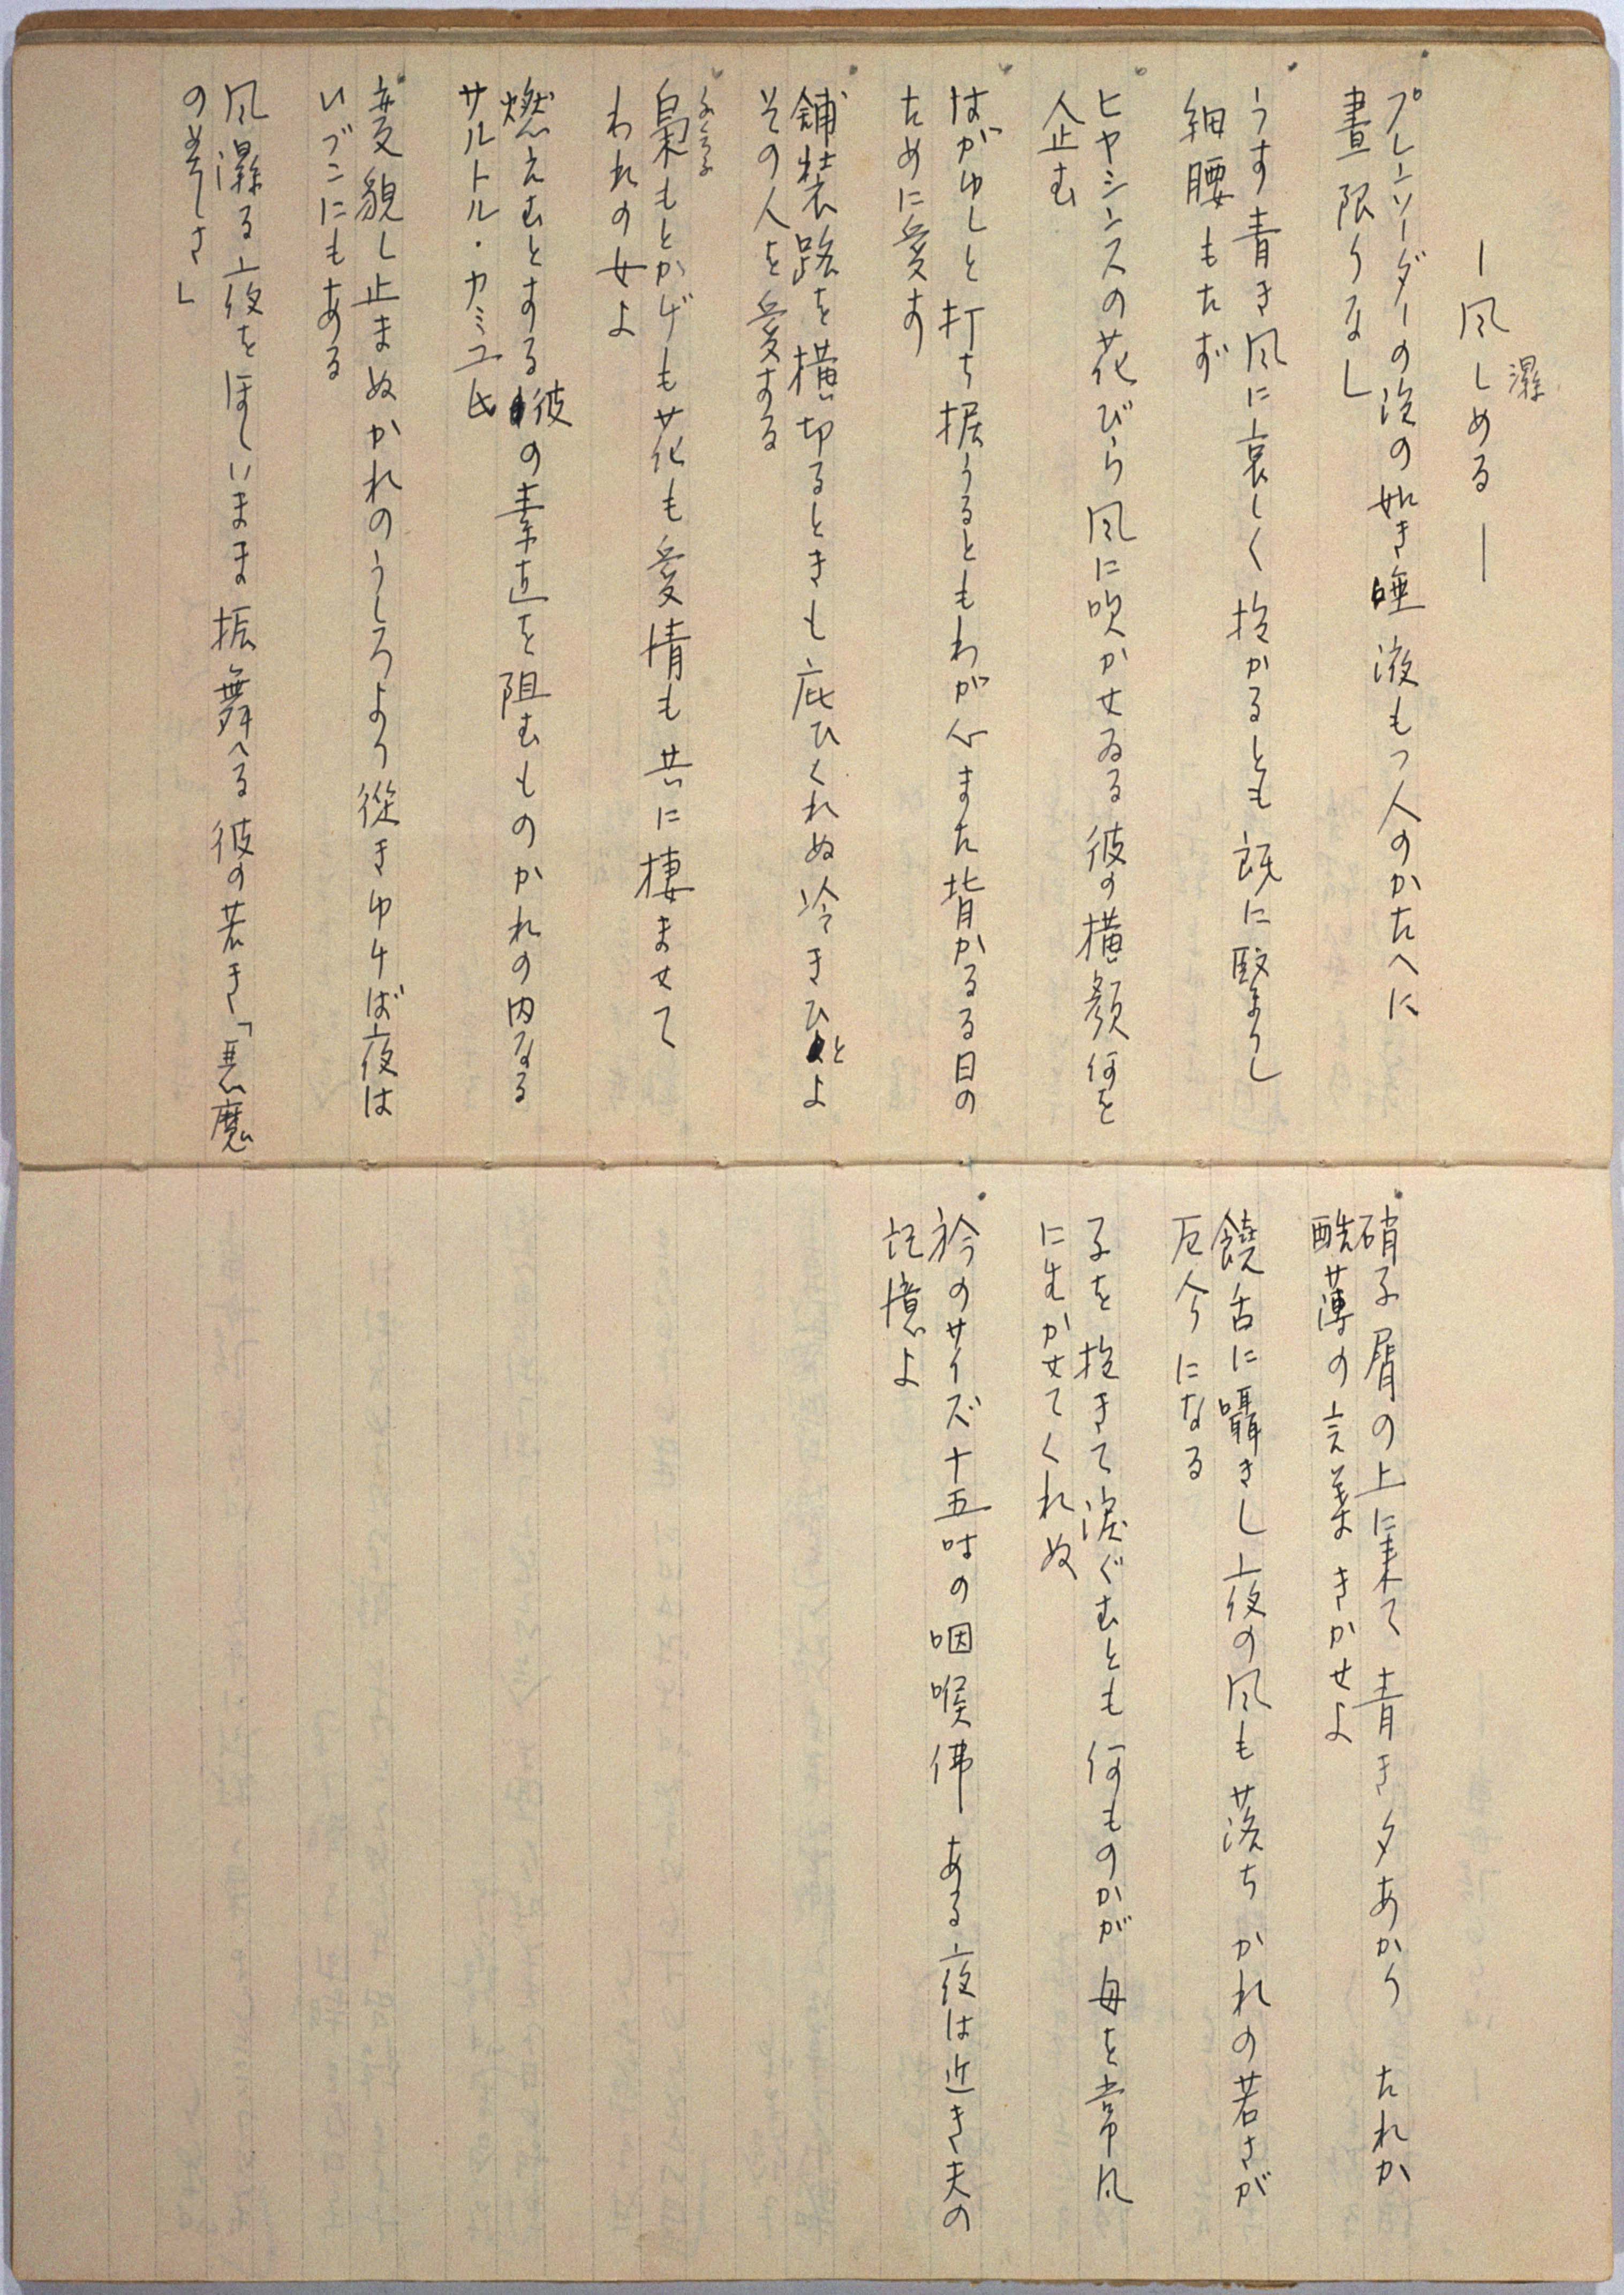 ―風しめる―
濕
プレーンソーダーの泡の如き唾液もつ人のかたへに
晝限りなし
うす青き風に哀しく抱かるとも既に翳りし
細腰もたず
ヒヤシンスの花びら風に吹かせゐる彼の横顏何を
企む
はがゆしと打ち据うるともわが心また背かるる日の
ために愛す
舗装路を横切るときも庇ひくれぬ冷きひとよ
その人を愛する
ふくろふ
梟もとかげも花も愛情も共に棲ませて
われの女よ
燃えむとする彼の素直を阻むものかれの内なる
サルトル・カミユ氏
変貌し止まぬかれのうしろより從きゆけば夜は
いづこにもある
風濕る夜をほしいまま振舞へる彼の若き「悪魔
の美しさ」
硝子屑の上に来て青き夕あかり たれか
酷薄の言葉きかせよ
饒舌に囁きし夜の風も落ちかれの若さが
厄介になる
子を抱きて涙ぐむとも何ものかが母を常凡
に生かせてくれぬ
衿のサイズ十五吋の咽喉佛ある夜は近き夫の
記憶よ